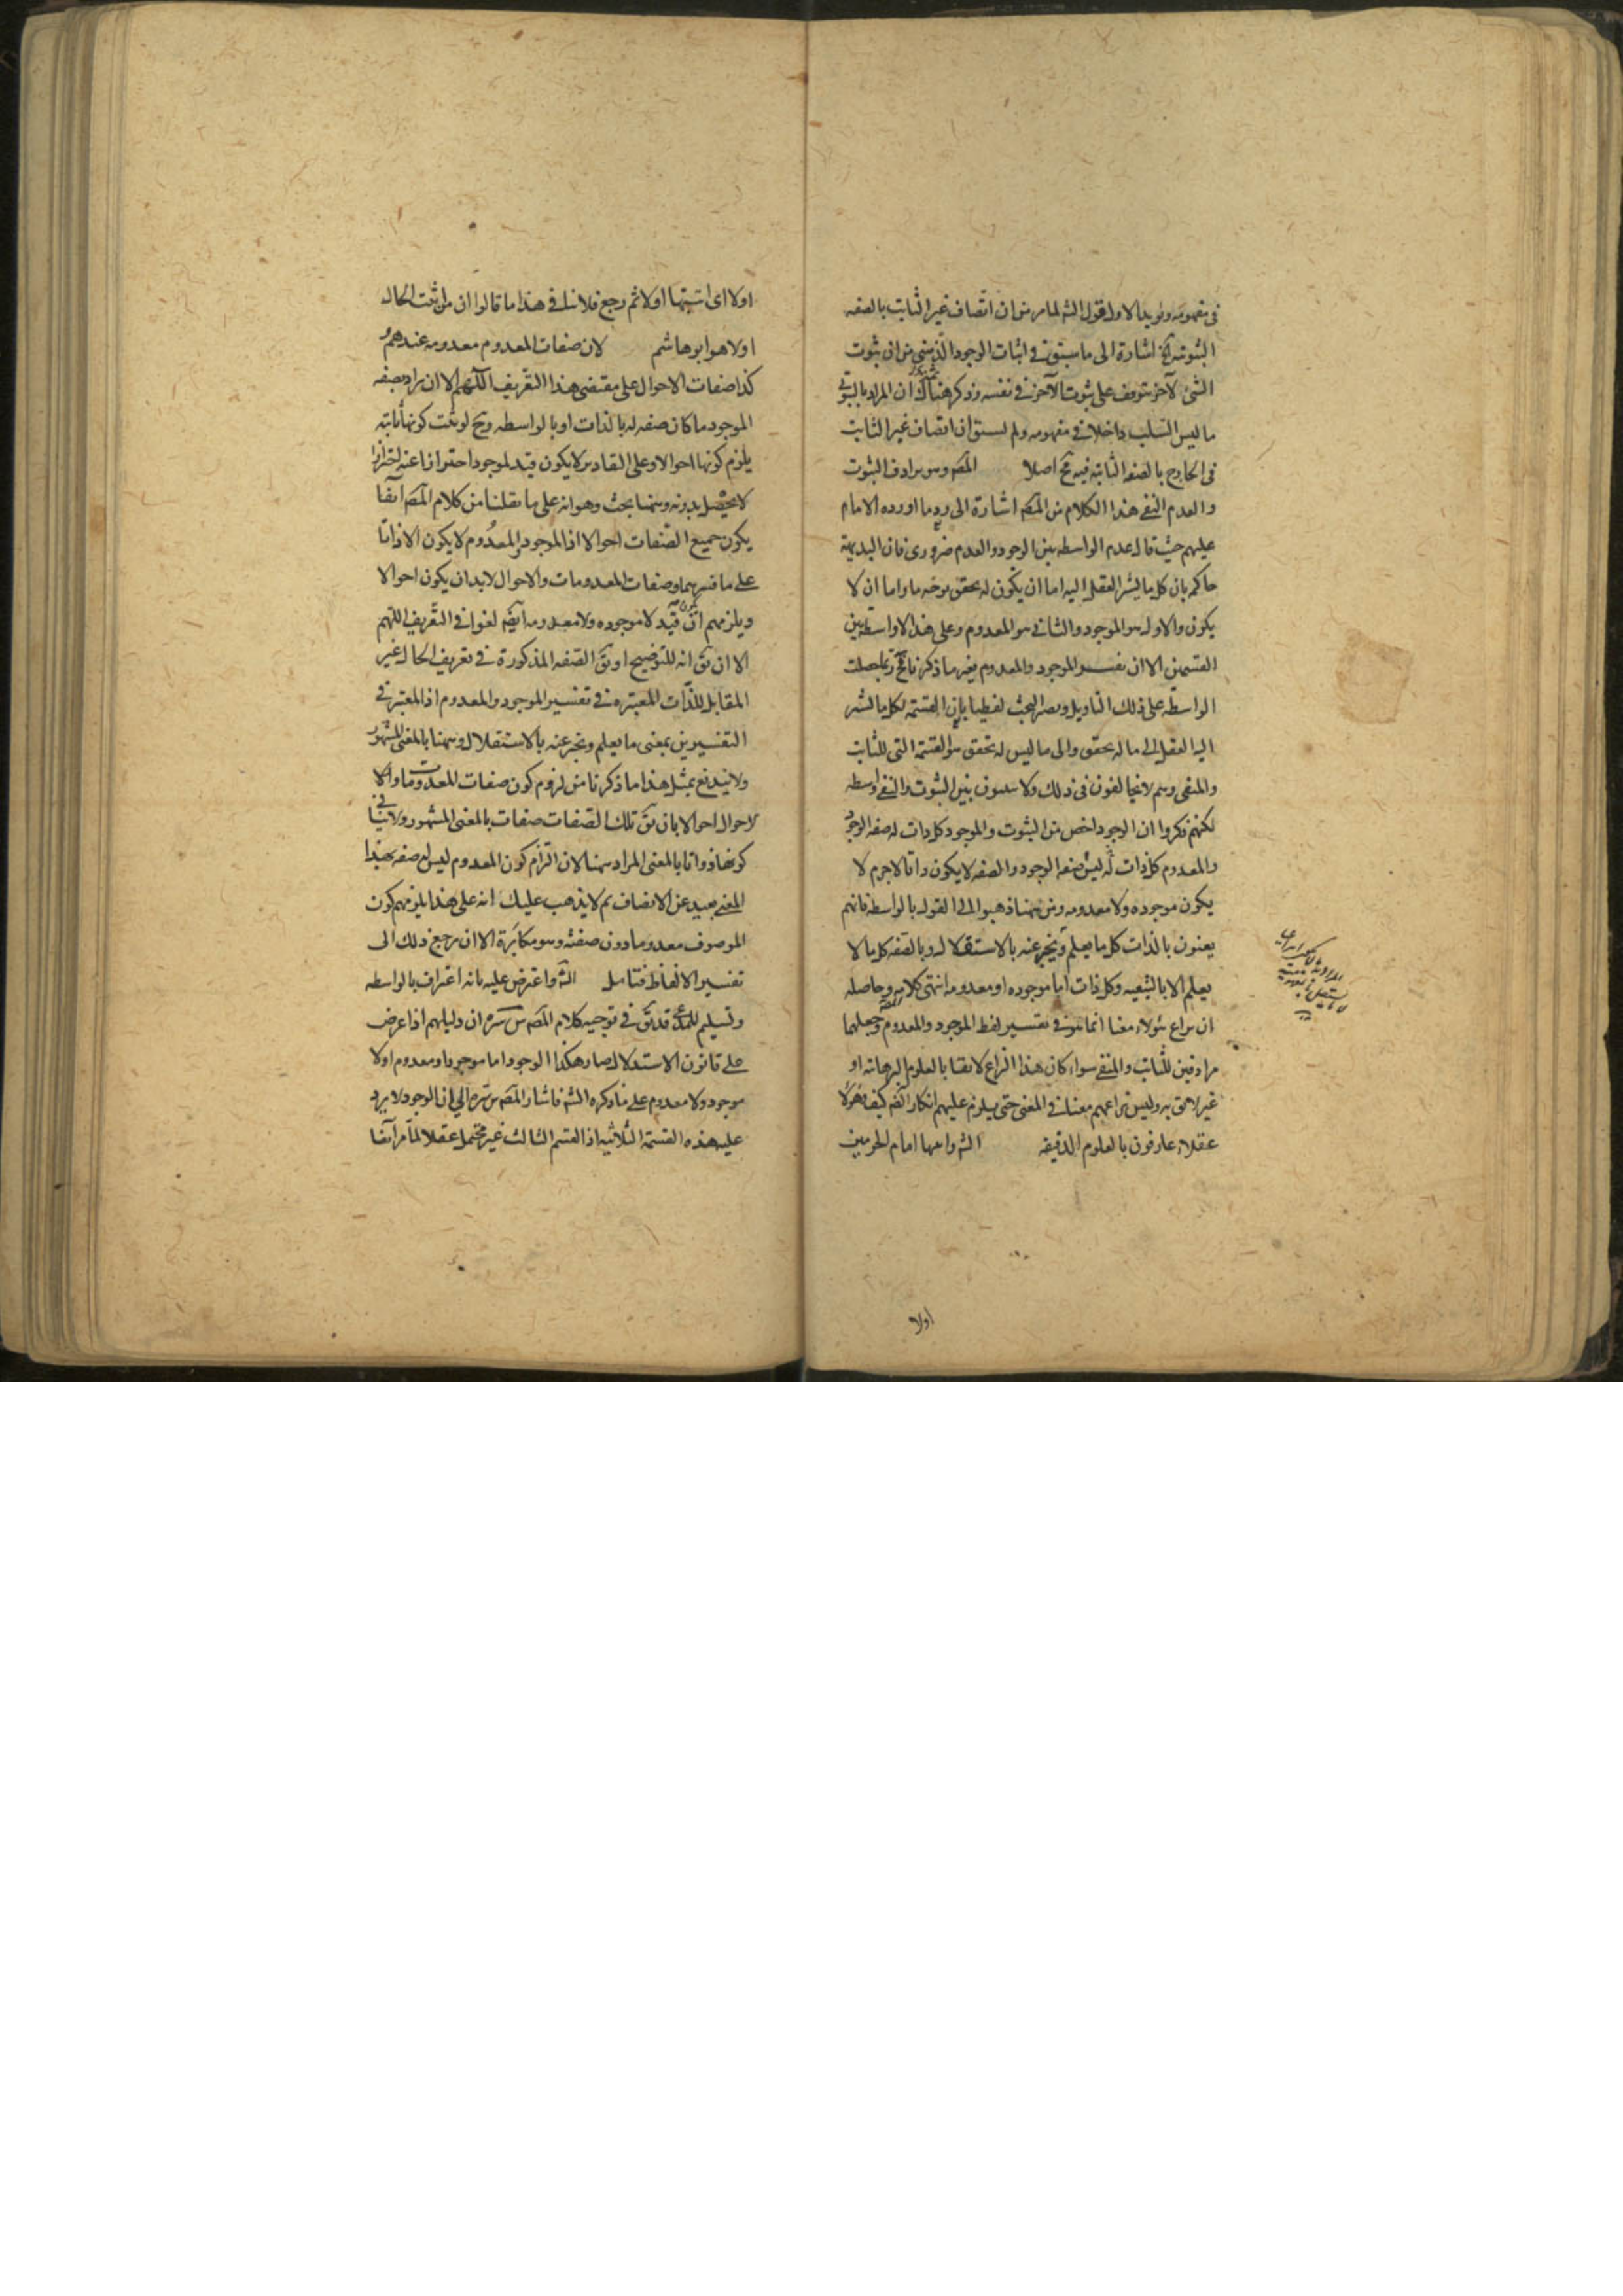 في مفهومه ويؤيد الاول قول الشه لما مر من ان اتصاف غير الثابت بالصفه
الثبوتيه مح اشارة الى ما سبق في اثبات الوجود الذهني من ان ثبوت
الشئ لآخر يتوقف على ثبوت الآخر في نفسه وذكر هناك ان المراد بالثبوتي
ما ليس السلب داخلا في مفهومه ولم يسبق ان اتصاف غير الثابت
في الخارج بالصفه الثابته فيه مح اصلا المصه وهو يرادف الثبوت
والعدم النفي هذا الكلام من المصه اشارة الى رد ما اورده الامام
عليهم حيث قال عدم الواسطه بين الوجود والعدم ضروري فان البديهة
حاكمه بان كل ما يشير العقل اليه اما ان يكون له تحقق بوجه ما واما ان لا
يكون والاول هو الموجود والثاني هو المعدوم وعلى هذا لا واسطة بين
القسمين الا ان يفسر الموجود والمعدوم بغير ما ذكرنا فح ربما حصلت
الواسطة على ذلك التاويل ويصير البحث لفظيا بان القسمة لكل ما يشير
اليه العقل الى ما له تحقق والى ما ليس له تحقق هو القسمة التي للثابت
والمنفي وهم لا يخالفون في ذلك ولا يثبتون بين الثبوت والنفي واسطه
لكنهم ذكروا ان الوجود اخص من الثبوت والموجود كل ذات له صفه الوجود
والمعدوم كل ذات ليس له صفه الوجود والصفه لا يكون ذاتا لا جرم لا
يكون موجوده ولا معدومه ومن ههنا ذهبوا الى القول بالواسطه فانهم
يعنون بالذات كل ما يعلم ويخبر عنه بالاستقلال وبالصفه كل ما لا
يعلم الا بالتبعيه وكل ذات اما موجوده او معدومه انتهى كلامه وحاصله
ان نزاع هؤلاء معنا انما هو في تفسير لفظ الموجود والمعدوم وجعلهما
مرادفين للثابت والمنفي سواء كان هذا النزاع لائقا بالعلوم البرهانيه او
غير لائق به وليس نزاعهم معنا في المعنى حتى يلزم عليهم انكار الضه كيف وهؤلاء
عقلاء عارفون بالعلوم الدقيقه الشه واتبعها امام الحرمين
اولا
اولا اى اثبتها اولا ثم رجع فلا ينافي هذا ما قالوا ان من اثبت الحال
اولا هو ابو هاشم لان صفات المعدوم معدومه عندهم
كذا صفات الاحوال على مقتضى هذا التعريف اللهم الا ان يراد بصفه
الموجود ما كان صفه له بالذات او بالواسطه وح لو ثبت كونها ثابته
يلزم كونها احوالا وعلى التقادير لا يكون قيد لموجود احترازا عنه احترازا
لا يحصل بدونه وههنا بحث وهو انه على ما نقلنا من كلام المصه آنفا
يكون جميع الصفات احوالا اذ الموجود والمعدوم لا يكون الا ذاتا
على ما فسرهما وصفات المعدومات والاحوال لا بد ان يكون احوالا
ويلزمهم ان قيد لا موجوده ولا معدومه ايضه لغوا في التعريف اللهم
الا ان يق انه للتوضيح او يق الصفه المذكورة في تعريف الحال غير
المقابل للذات المعتبره في تفسير الموجود والمعدوم اذ المعتبر في
التفسيرين بمعنى ما يعلم ويخبر عنه بالاستقلال وههنا بالمعنى المشهور
ولا يندفع بمثل هذا ما ذكرنا من لزوم كون صفات المعدومات والا
لاحوال احوالا بان يق تلك الصفات صفات بالمعنى المشهور ولا ينافي
كونها ذواتا بالمعنى المراد ههنا لان التزام كون المعدوم ليس له صفه بهذا
المعنى بعيد عن الانصاف ثم لا يذهب عليك انه على هذا يلزمهم كون
الموصوف معدوما دون صفته وهو مكابرة الا ان يرجع ذلك الى
تفسير الالفاظ فتامل الشه واعترض عليه بانه اعتراف بالواسطه
وتسليم للمدعى قد يق في توجيه كلام المصه س سره ان دليلهم اذا عرض
على قانون الاستدلال صار هكذا الوجود اما موجود او معدوم اولا
موجود ولا معدوم على ما ذكره الشه فاشار المصه س سره الى ان الوجود لا يرد
عليه هذه القسمة الثلاثيه اذ القسم الثالث غير محتمل عقلا لما مر آنفا